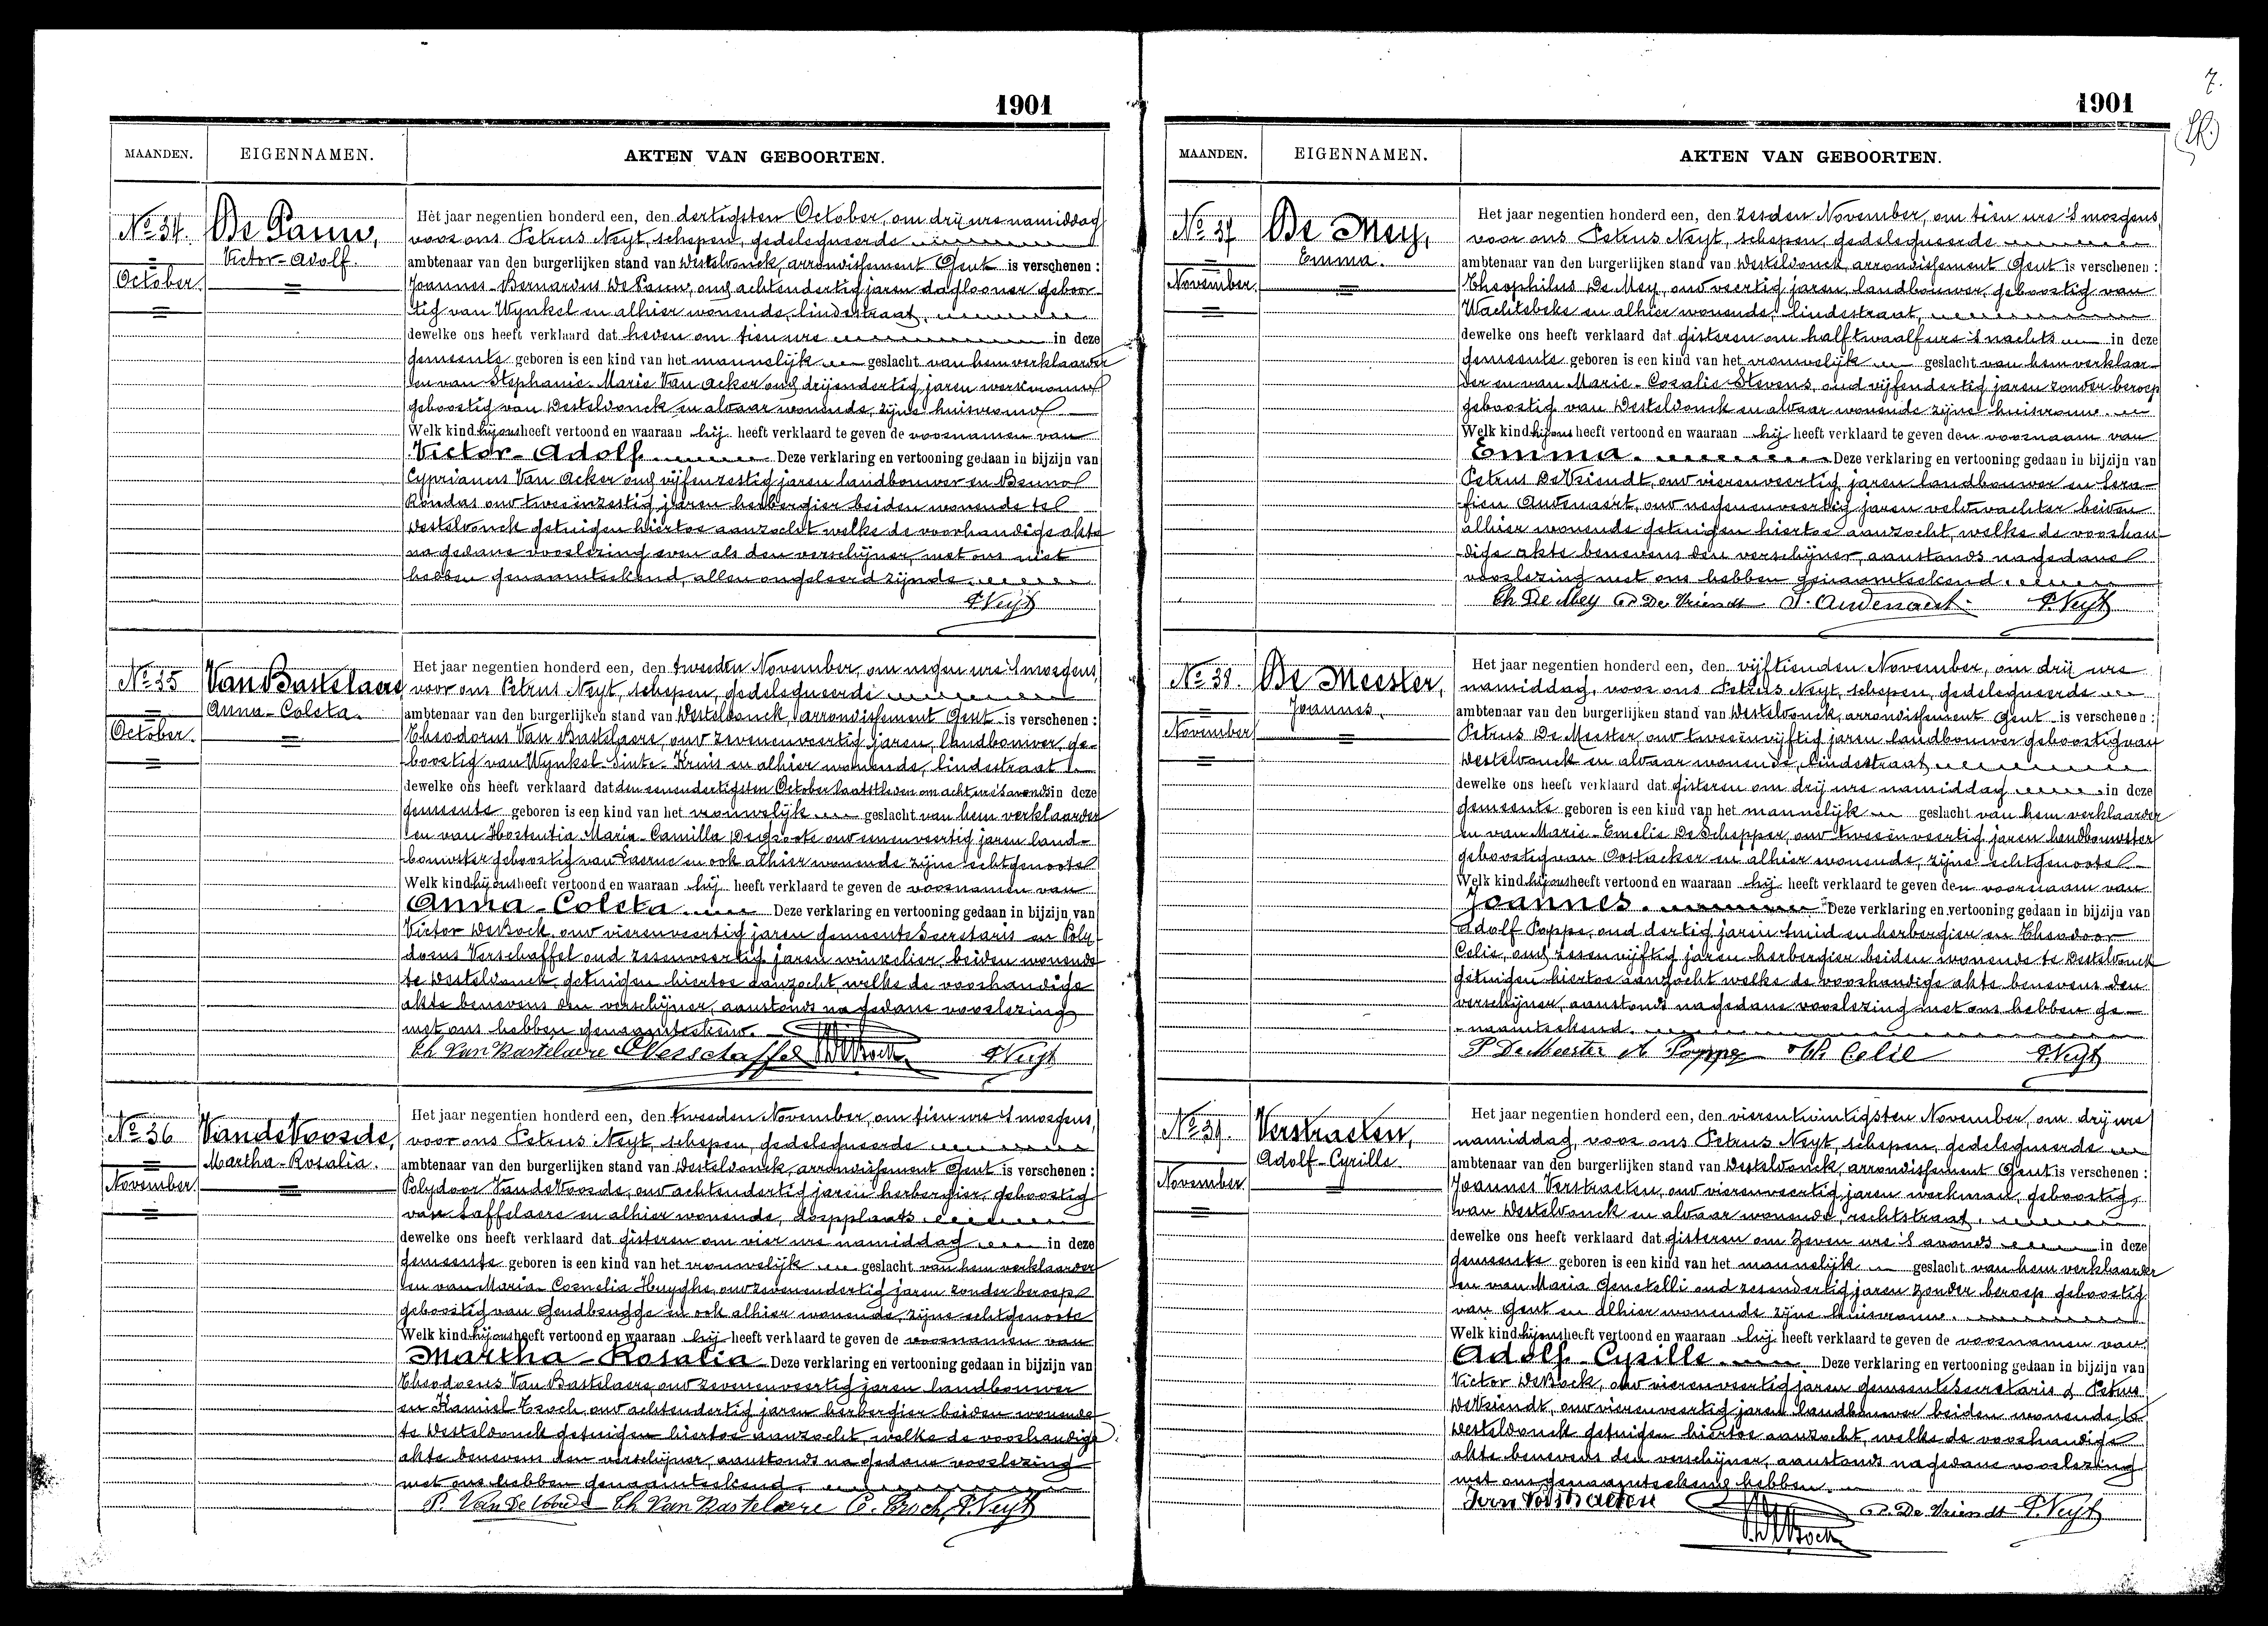 1901
MAANDEN. EIGENNAMEN. AKTEN VAN GEBOORTEN.
No 34. De Pauw,
Victor-Adolf.
October.
Het jaar negentien honderd een, den dertigsten October, om drij ure namiddag
voor ons Petrus Neyt, schepen, gedelegueerde
ambtenaar van den burgerlijken stand van Desteldonck, arrondissement Gent is verschenen:
Joannes-Bernardus De Pauw, oud achtendertig jaren daglooner geboor-
tig van Wynkel en alhier wonende, lindestraat,
dewelke ons heeft verklaard dat heden om tien ure in deze
gemeente geboren is een kind van het mannelijk geslacht van hem verklaarder
en van Stephanie-Marie Van Acker oud drijendertig jaren werkvrouw
geboortig van Desteldonck en aldaar wonende, zijne huisvrouw
Welk kind hij ons heeft vertoond en waaraan hij heeft verklaard te geven de voornamen van
Victor-Adolf. Deze verklaring en vertooning gedaan in bijzijn van
Cyprianus Van Acker oud vijfenzestig jaren landbouwer en Bruno
Rondas oud tweeënzestig jaren herbergier beiden wonende te
Desteldonck getuigen hiertoe aanzocht welke de voorhandige akte
na gedane voorlezing even als den verschijner, met ons niet
hebben genaamteekend, allen ongeleerd zijnde.
P. Neyt
No 35 Van Bastelaere,
Anna-Coleta.
October.
Het jaar negentien honderd een, den tweeden November, om negen ure 's morgens,
voor ons Petrus Neyt, schepen, gedelegueerde
ambtenaar van den burgerlijken stand van Desteldonck, arrondissement Gent is verschenen:
Theodorus Van Bastelaere, oud zevenenveertig jaren, landbouwer, ge-
boortig van Wynkel Sinte-Kruis en alhier wonende, lindestraat
dewelke ons heeft verklaard dat den eenendertigsten October laatstleden om acht ure 's avonds in deze
gemeente geboren is een kind van het vrouwelijk geslacht van hem verklaarder
en van Hortentia-Maria-Camilla Degroote oud eenenveertig jaren land-
bouwster geboortig van Laerne en ook alhier wonende zijne echtgenoote
Welk kind hij ons heeft vertoond en waaraan hij heeft verklaard te geven de voornamen van
Anna-Coleta. Deze verklaring en vertooning gedaan in bijzijn van
Victor DeBock, oud vierenveertig jaren gemeente Secretaris en Poly-
dorus Verschaffel oud zesenveertig jaren winkelier, beiden wonende
te Desteldonck, getuigen hiertoe aanzocht, welke de voorhandige
akte benevens den verschijner, aanstonds na gedane voorlezing
met ons hebben genaamteekend.
Th Van Bastelaere P Verschaffel V DeBock P. Neyt
No 36 Van de Voorde,
Martha-Rosalia.
November.
Het jaar negentien honderd een, den tweeden November, om tien ure 's morgens,
voor ons Petrus Neyt, schepen, gedelegueerde
ambtenaar van den burgerlijken stand van Desteldonck, arrondissement Gent is verschenen:
Polydoor Van de Voorde, oud achtendertig jaren herbergier, geboortig
van Saffelaere en alhier wonende, dorpplaats
dewelke ons heeft verklaard dat gisteren om vier ure namiddag in deze
gemeente geboren is een kind van het vrouwelijk geslacht van hem verklaarder
en van Maria-Cornelia Huyghe, oud zevenendertig jaren zonder beroep
geboortig van Gendbrugge en ook alhier wonende, zijne echtgenoote
Welk kind hij ons heeft vertoond en waaraan hij heeft verklaard te geven de voornamen van
Martha-Rosalia Deze verklaring en vertooning gedaan in bijzijn van
Theodorus Van Bastelaere, oud zevenenveertig jaren landbouwer
en Kamiel Troch, oud achtendertig jaren herbergier beiden wonende
te Desteldonck getuigen hiertoe aanzocht, welke de voorhandige
akte benevens den verschijner, aanstonds na gedane voorlezing
met ons hebben genaamteekend.
P. Van De Voorde Th Van Bastelaere C. Troch P. Neyt
7.
1901
MAANDEN. EIGENNAMEN. AKTEN VAN GEBOORTEN.
No 37 De Mey,
Emma.
November.
Het jaar negentien honderd een, den zesden November, om tien ure 's morgens,
voor ons Petrus Neyt, schepen, gedelegueerde
ambtenaar van den burgerlijken stand van Desteldonck, arrondissement Gent is verschenen:
Theophilus De Mey, oud veertig jaren, landbouwer, geboortig van
Wachtebeke en alhier wonende, lindestraat,
dewelke ons heeft verklaard dat gisteren om half twaalf ure 's nachts in deze
gemeente geboren is een kind van het vrouwelijk geslacht van hem verklaar-
der en van Marie-Rosalie Stevens, oud vijfendertig jaren zonder beroep
geboortig van Desteldonck en aldaar wonende zijne huisvrouw.
Welk kind hij ons heeft vertoond en waaraan hij heeft verklaard te geven den voornaam van
Emma. Deze verklaring en vertooning gedaan in bijzijn van
Petrus DeVriendt, oud vierenveertig jaren landbouwer en Sera-
fien Audenaert, oud negenenveertig jaren veldwachter beiden
alhier wonende getuigen hiertoe aanzocht, welke de voorhan-
dige akte benevens den verschijner, aanstonds na gedane
voorlezing met ons hebben genaamteekend.
Th De Mey P. De Vriendt S. Audenaert. P. Neyt
No 38. De Meester,
Joannes.
November
Het jaar negentien honderd een, den vijftienden November, om drij ure
namiddag, voor ons Petrus Neyt, schepen, gedelegueerde
ambtenaar van den burgerlijken stand van Desteldonck, arrondissement Gent is verschenen:
Petrus De Meester, oud tweeënvijftig jaren landbouwer geboortig van
Desteldonck en aldaar wonende, lindestraat
dewelke ons heeft verklaard dat gisteren om drij ure namiddag in deze
gemeente geboren is een kind van het mannelijk geslacht van hem verklaarder
en van Marie-Emelie DeSchepper, oud tweeënveertig jaren landbouwster
geboortig van Oostacker en alhier wonende, zijne echtgenoote
Welk kind hij ons heeft vertoond en waaraan hij heeft verklaard te geven den voornaam van
Joannes. Deze verklaring en vertooning gedaan in bijzijn van
Adolf Poppe, oud dertig jaren smid en herbergier en Theodoor
Celie, oud zesenvijftig jaren herbergier beiden wonende te Desteldonck
getuigen hiertoe aanzocht welke de voorhandige akte benevens den
verschijner, aanstonds na gedane voorlezing met ons hebben ge-
naamteekend.
P De Meester A Poppe Th. Celie P. Neyt
No 39. Verstraeten,
Adolf-Cyrille.
November
Het jaar negentien honderd een, den vierentwintigsten November, om drij ure
namiddag, voor ons Petrus Neyt, schepen, gedelegueerde
ambtenaar van den burgerlijken stand van Desteldonck, arrondissement Gent is verschenen:
Joannes Verstraeten, oud vierenveertig jaren werkman, geboortig,
van Desteldonck en aldaar wonende, rechtstraat.
dewelke ons heeft verklaard dat gisteren om zeven ure 's avonds in deze
gemeente geboren is een kind van het mannelijk geslacht van hem verklaarder
en van Maria Genetelli oud zesendertig jaren zonder beroep geboortig
van Gent en alhier wonende zijne huisvrouw.
Welk kind hij ons heeft vertoond en waaraan hij heeft verklaard te geven de voornamen van
Adolf-Cyrille. Deze verklaring en vertooning gedaan in bijzijn van
Victor DeBock, oud vierenveertig jaren gemeente Secretaris & Petrus
DeVriendt, oud vierenveertig jaren landbouwer beiden wonende te
Desteldonck getuigen hiertoe aanzocht, welke de voorhandige
akte benevens den verschijner, aanstonds na gedane voorlezing
met ons genaamteekend hebben.
Joan Verstraeten V DeBock P. De Vriendt P. Neyt